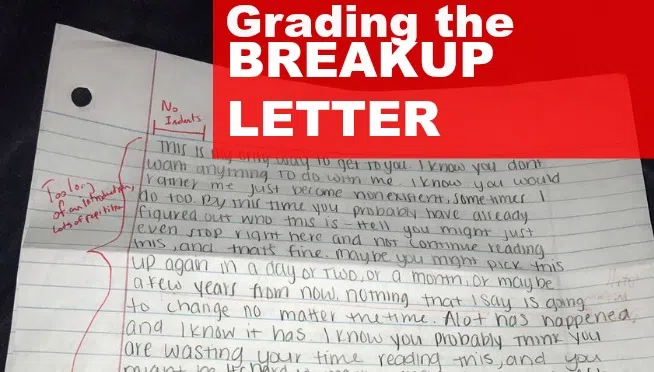 Grading the
BREAKUP
LETTER
No
Indents
Too long
of an introduction,
Lots of repetition
This is my only way to get to you. I know you dont
want anything to do with me. I know you would
rather me just become nonexistent, sometimes I
do too. By this time you probably have already
figured out who this is - Hell you might just
even stop right here and not continue reading
this, and thats fine. maybe you might pick this
up again in a day or two, or a month, or maybe
a few years from now. nothing that I say is going
to change no matter the time. Alot has happened,
and I know it has. I know you probably think you
are wasting your time reading this, and you
might be